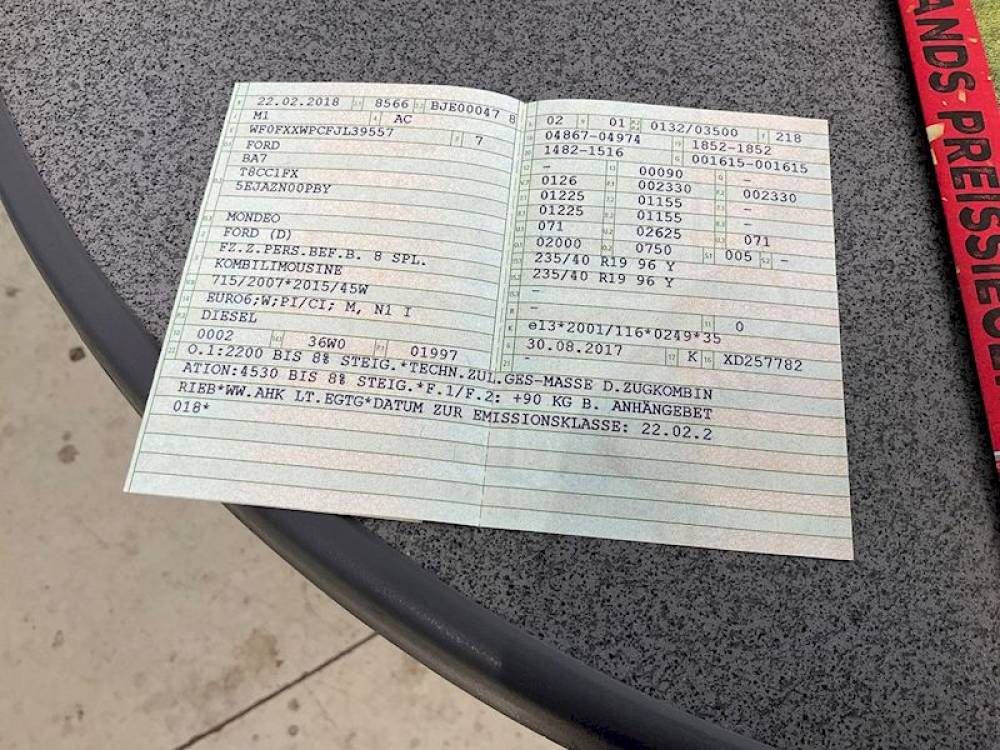 22.02.2018 8566 BJE00047 8
M1 AC
WF0FXXWPCFJL39557 7
FORD
BA7
T8CC1FX
5EJAZN00PBY
MONDEO
FORD (D)
FZ.Z.PERS.BEF.B. 8 SPL.
KOMBILIMOUSINE
715/2007*2015/45W
EURO6;W;PI/CI; M, N1 I
DIESEL
0002 36W0 01997
02 01 0132/03500 218
04867-04974 1852-1852
1482-1516 001615-001615
- 00090 -
0126 002330 002330
01225 01155 -
01225 01155 -
071 02625 071
02000 0750 005 -
235/40 R19 96 Y
235/40 R19 96 Y
-
-
- 0
e13*2001/116*0249*35
30.08.2017 K XD257782
-
O.1:2200 BIS 8% STEIG.*TECHN.ZUL.GES-MASSE D.ZUGKOMBIN
ATION:4530 BIS 8% STEIG.*F.1/F.2: +90 KG B. ANHÄNGEBET
RIEB*WW.AHK LT.EGTG*DATUM ZUR EMISSIONSKLASSE: 22.02.2
018*
ANDS PREISSIEGER